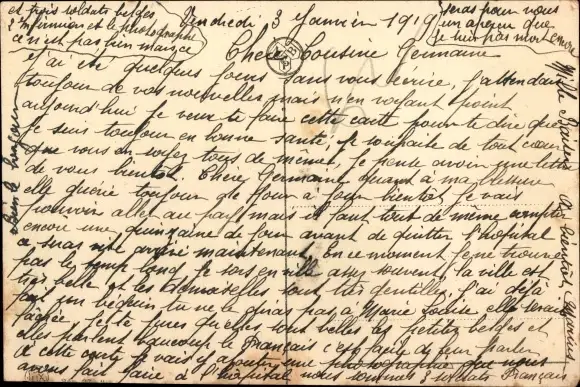 Vendredi 3 Janvier 1919
Chere Cousine Germaine
J'ai été quelques jours sans vous écrire, j'attendais
toujour de vos nouvelles mais n'en voyant point
aujourd'hui je veux te faire cette carte pour te dire que
je suis toujour en bonne santé, je souhaite de tout coeur
que vous en soyez tous de même, je pense avoir une lettre
de vous bientot. Chere Germaine quant a ma blessure
elle guérie toujour de jour a jour bientot je vais
pouvoir aller au pays mais il faut tout de meme compter
encore une quinzaine de jour avant de quitter l'hopital
ce serat vite arrivé maintenant. En ce moment je ne trouve
pas le temps long je sors en ville assez souvent, la ville est
très belle et les demoiselles sont très gentilles j'ai déjà
fait mon béguin tu ne le diras pas a Marie Louise elle serait
fachée je te jures quelles sont belles les petites belges et
elles parlent beaucoup le Français c'est facile de leur parler
de cette carte je vais y ajouter une photographie que nous
avons fait faire a l'hopital nous sommes Français
et trois soldats belges
2 infirmiers et le photographe
ce n'est pas bien mariée
Seras pour vous
un aperçu que
je suis pas mort encore
bien le bonjour